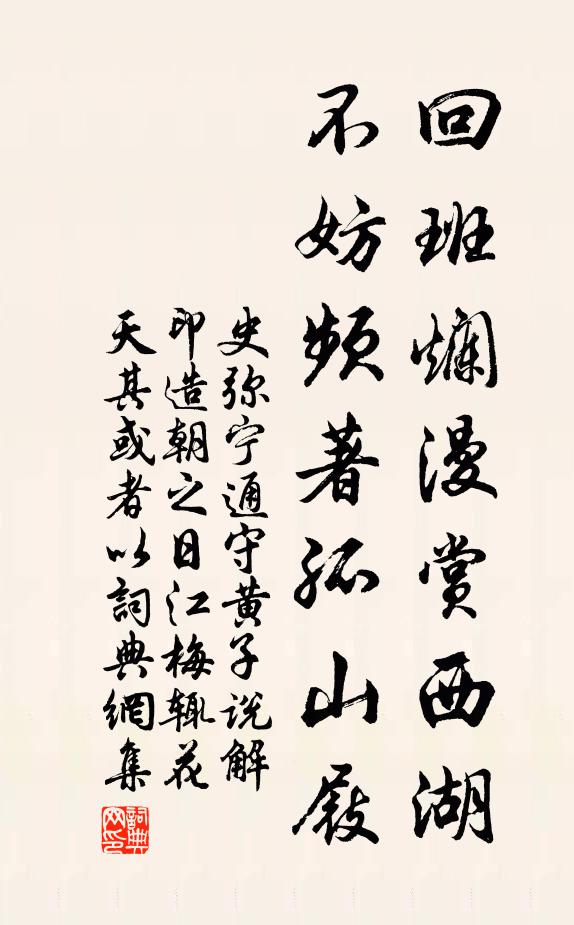 回班爛漫賞西湖
不妨頻著孤山屐
史弥宁通守黄子说解
印造朝之日江梅辄花
天其或者以詞典網集
詞典网印